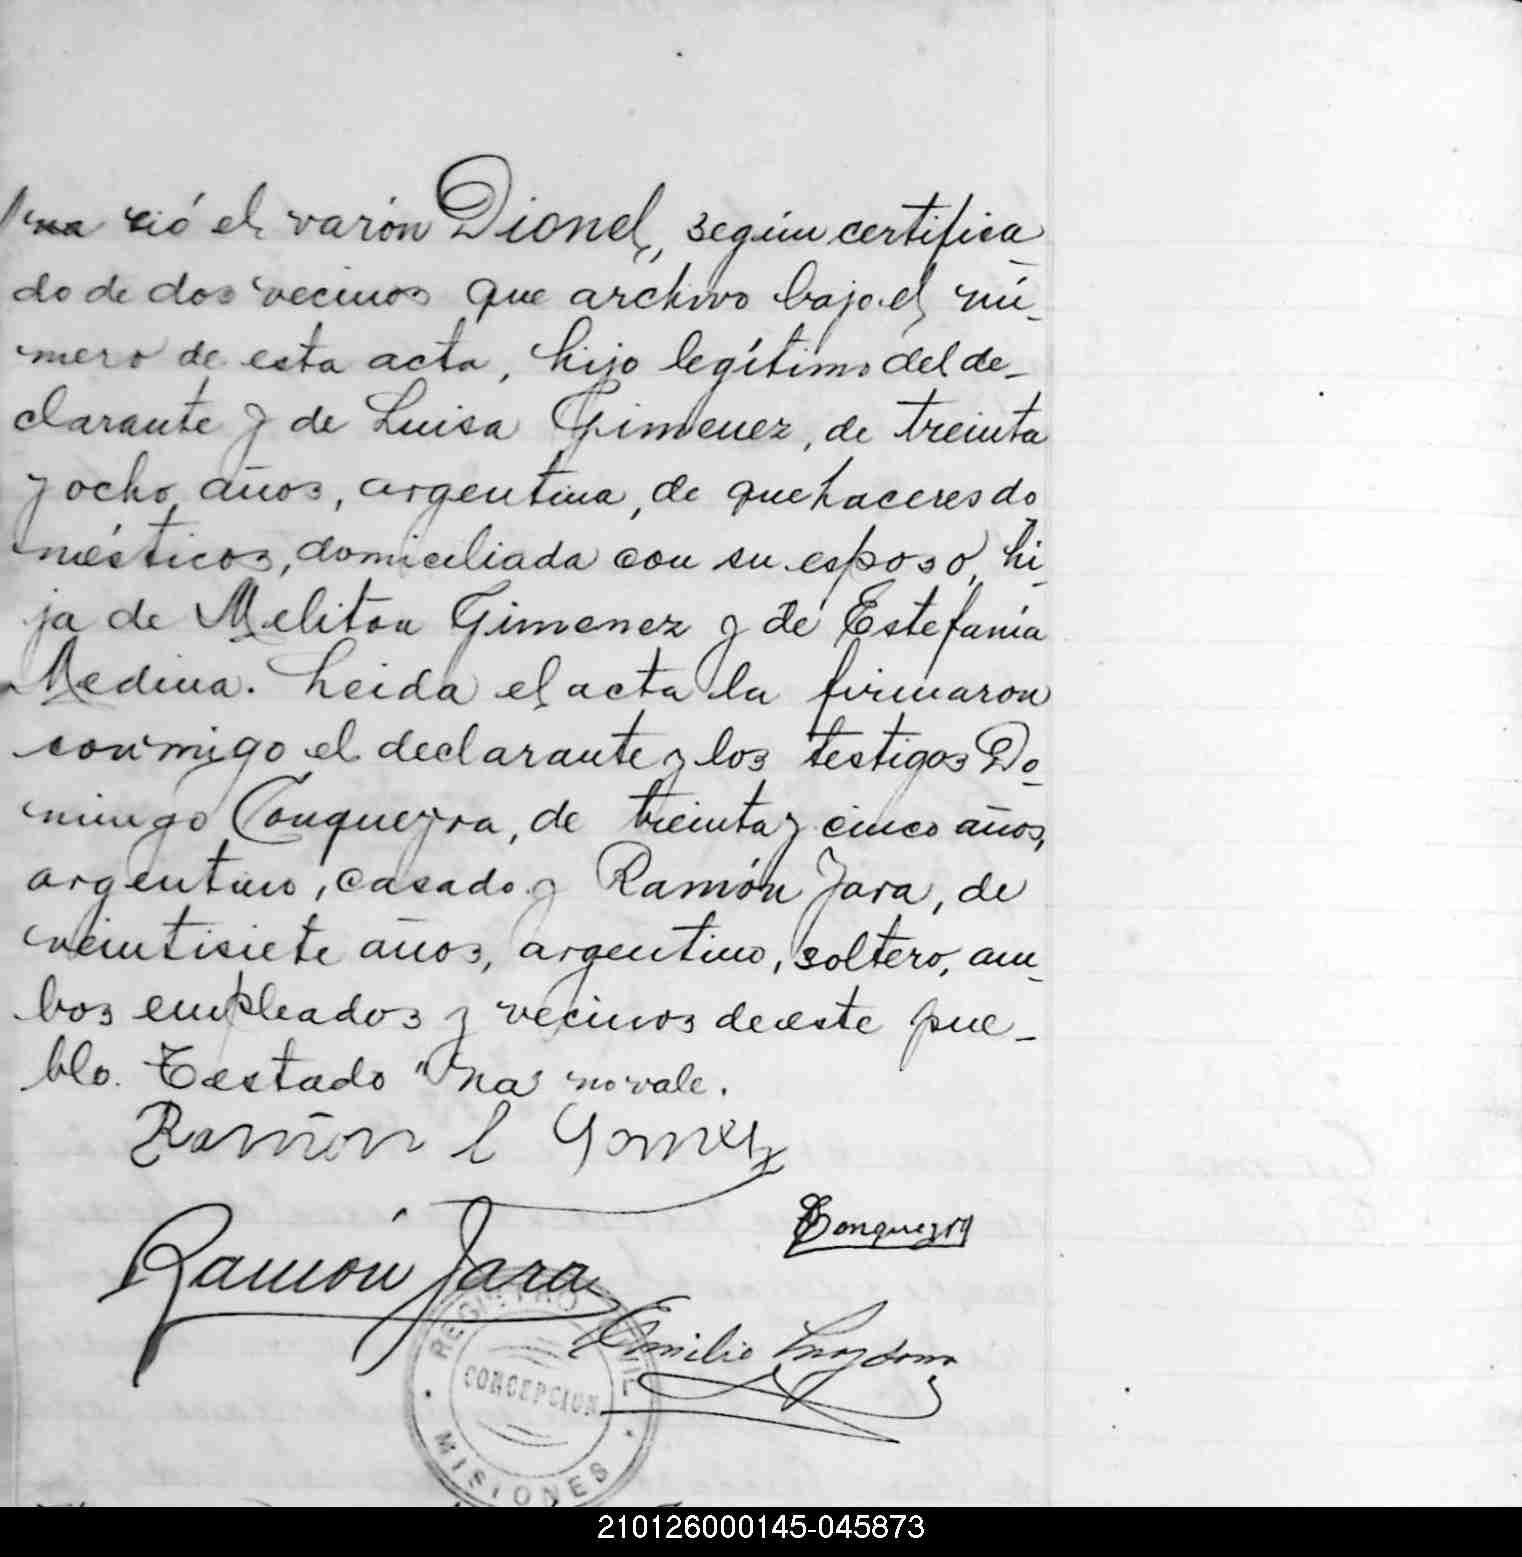 na ció el varón Dionel, según certifica-
do de dos vecinos que archivo bajo el nú-
mero de esta acta, hijo legítimo del de-
clarante y de Luisa Gimenez, de treinta
y ocho años, argentina, de quehaceres do
mésticos, domiciliada con su esposo, hi-
ja de Meliton Gimenez y de Estefanía
Medina. Leida el acta la firmaron
conmigo el declarante y los testigos Do-
mingo Conqueyra, de treinta y cinco años,
argentino, casado y Ramón Jara, de
veintisiete años, argentino, soltero, am-
bos empleados y vecinos de este pue-
blo. Testado "na" no vale.
Ramón l Gomez
Conqueyra
Ramón Jara
Emilio
REGISTRO CIVIL
CONCEPCION
MISIONES
210126000145-045873